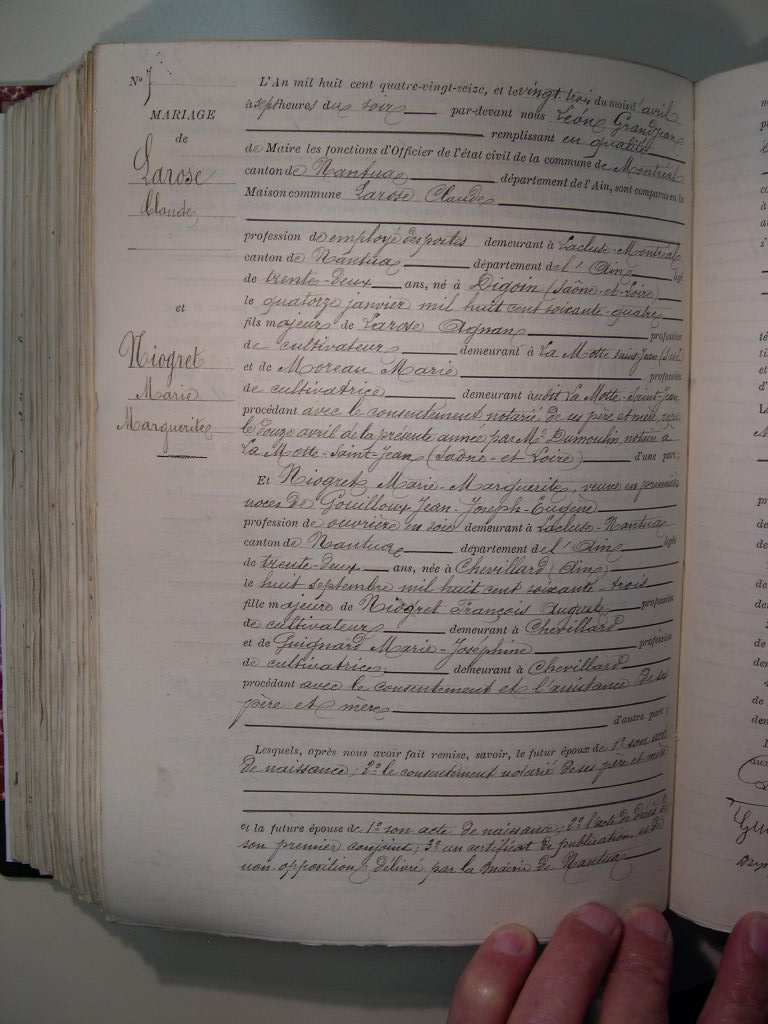 No 7
MARIAGE
de
Larose
Claude
et
Niogret
Marie
Marguerite
L'An mil huit cent quatre-vingt-seize, et le vingt trois du mois d'avril
à sept heures du soir par-devant nous Léon Grandjean
remplissant en qualité
de Maire les fonctions d'Officier de l'état civil de la commune de Montréal
canton de Nantua département de l'Ain, sont comparus en la
Maison commune Larose Claude
profession de employé des postes demeurant à Lacluse-Montréal
canton de Nantua département de l'Ain âgé
de trente-deux ans, né à Digoin (Saône-et-Loire)
le quatorze janvier mil huit cent soixante-quatre
fils majeur de Larose Aignan profession
de cultivateur demeurant à La Motte-Saint-Jean
et de Moreau Marie profession
de cultivatrice demeurant à La Motte-Saint-Jean
procédant avec le consentement notarié de ses père et mère, reçu
le douze avril de la présente année par Me Dumoulin notaire à
La Motte-Saint-Jean (Saône-et-Loire) d'une part;
Et Niogret Marie-Marguerite, veuve en premières
noces de Gouilloux Jean-Joseph-Eugène
profession de ouvrière en soie demeurant à Lacluse-Nantua
canton de Nantua département de l'Ain âgée
de trente-deux ans, née à Chevillard (Ain)
le huit septembre mil huit cent soixante-trois
fille majeure de Niogret François Auguste profession
de cultivateur demeurant à Chevillard
et de Guignard Marie-Joséphine profession
de cultivatrice demeurant à Chevillard
procédant avec le consentement et l'assistance de ses
père et mère
d'autre part;
Lesquels, après nous avoir fait remise, savoir, le futur époux de 1° son acte
de naissance; 2° le consentement notarié de ses père et mère
et la future épouse de 1° son acte de naissance; 2° l'acte de décès de
son premier conjoint; 3° un certificat de publication et de
non opposition délivré par la mairie de Nantua